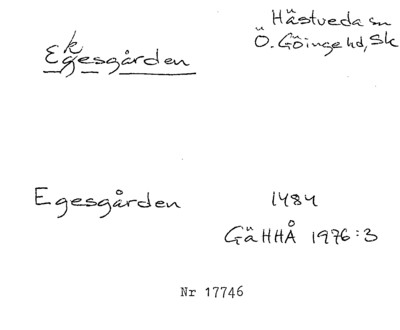 Hästveda sn
Ekesgården Ö. Göinge hd, Sk
Egesgården 1484
GäHHÅ 1976:3
Nr 17746